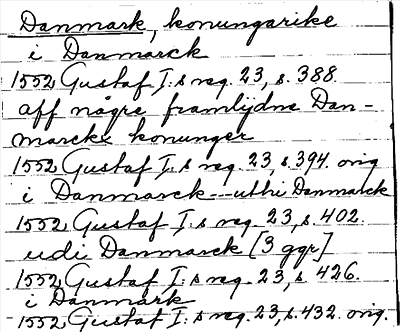 Danmark, konungarike
i Danmarck
1552 Gustaf I:s reg. 23, s. 388.
aff någre framlijdne Dan-
marcks konunger
1552 Gustaf I:s reg. 23, s. 394. orig
i Danmarck--uthi Danmarck
1552 Gustaf I:s reg. 23, s. 402.
udi Danmarck [3 ggr]
1552 Gustaf I:s reg. 23, s. 426.
i Danmark
1552 Gustaf I:s reg. 23, s. 432. orig.